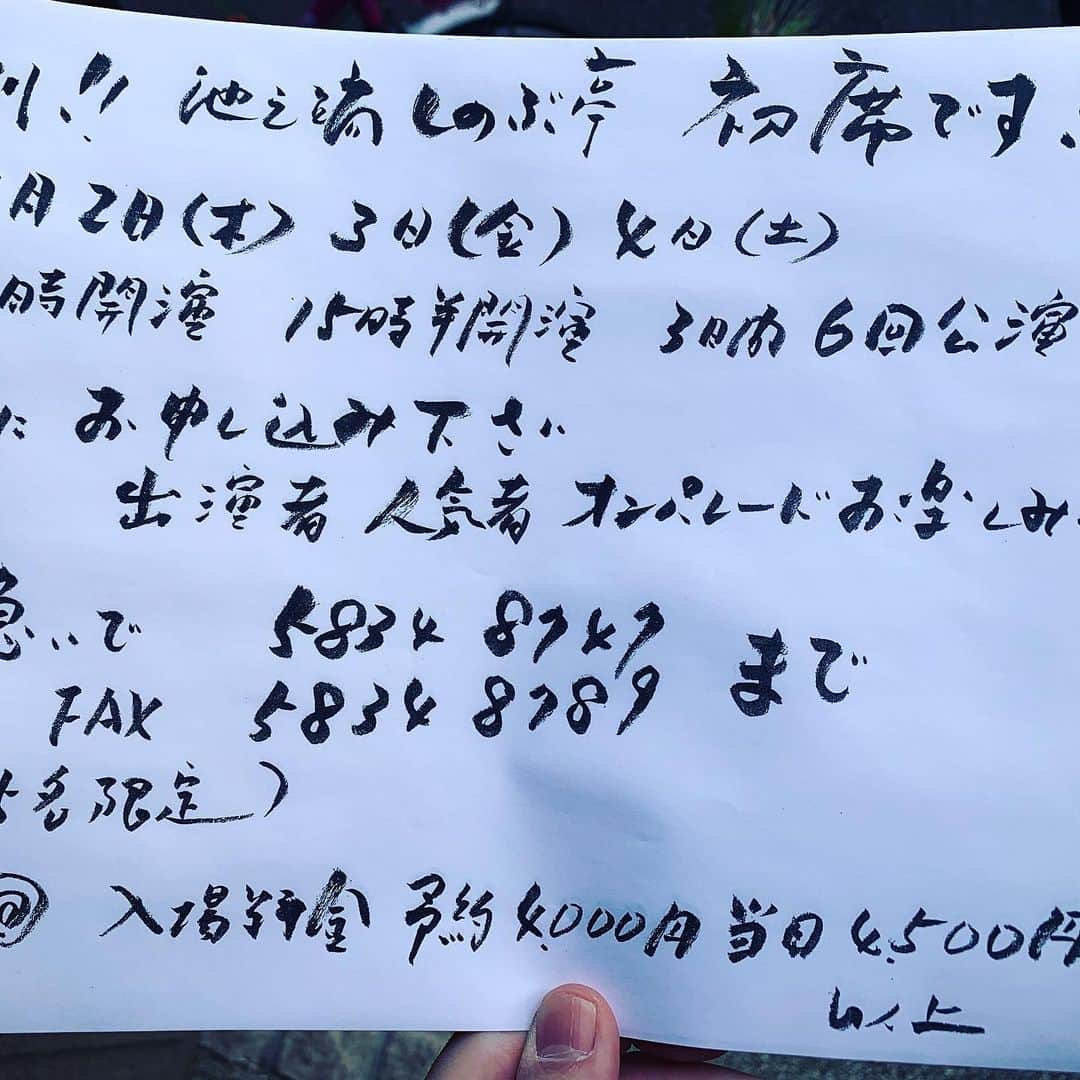 !! 池之端しのぶ亭 初席です!
月2日(木) 3日(金) 4日(土)
時開演 15時半開演 3日内 6回公演
に お申し込み下さい
出演者 人気者 オンパレードお楽しみ
急いで 5834 8747 まで
FAX 5834 8789
5名限定)
回 入場料金 予約4,000円 当日4,500円
以上